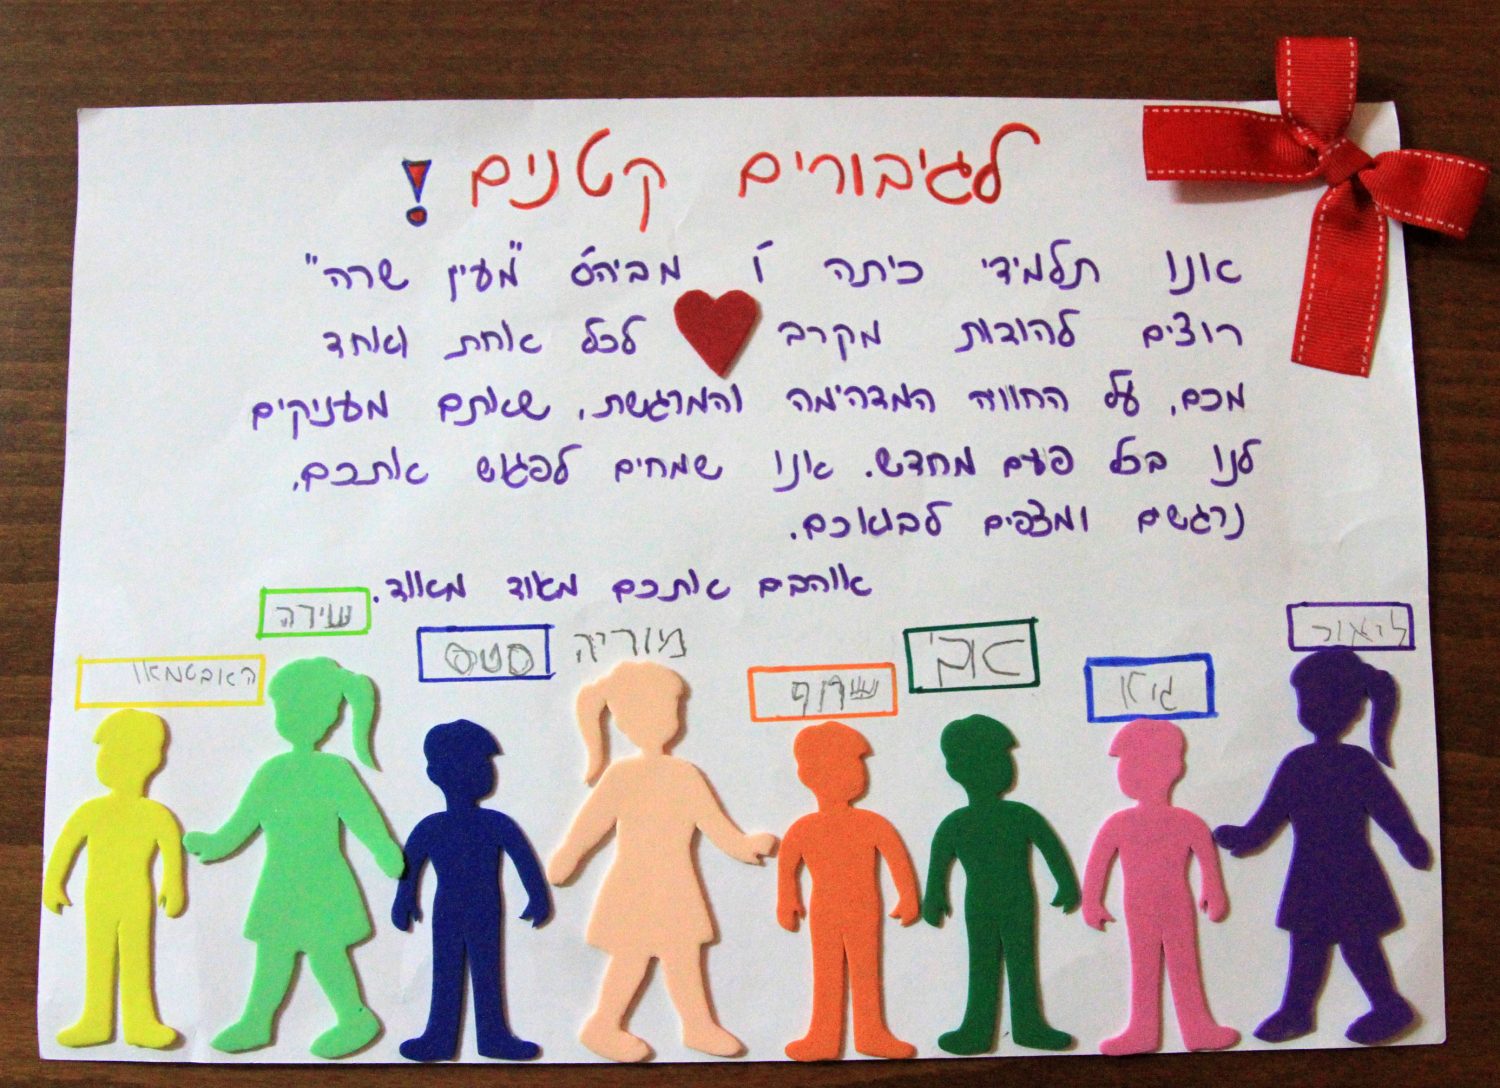 לגיבורים קטנים!
אנו תלמידי כיתה ו' מביה"ס "מעין שרה"
רוצים להודות מקרב לכל אחת ואחד
מכם, על החוויה המדהימה והמרגשת, שאתם מעניקים
לנו בכל פעם מחדש. אנו שמחים לפגוש אתכם,
נרגשים ומצפים לבואכם.
אוהבים אתכם מאוד מאוד.
ליאור
גיא
מוריה
סטס
שירה